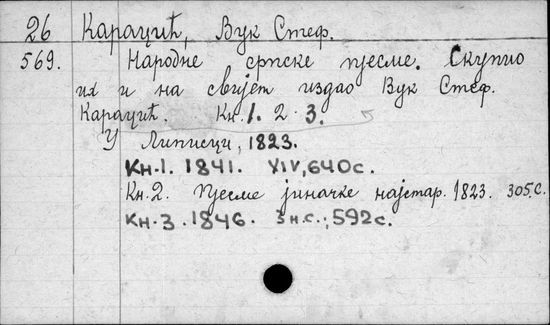 26 Караџић, Вук Стеф.
569. Народне српске пјесме. Скупио
их и на свијет издао Вук Стеф.
Караџић. Кн. 1. 2. 3.
У Липисци, 1823.
Кн.1. 1841. XIV, 640с.
Кн.2. Пјесме јуначке најстар. 1823. 305.С.
Кн.3. 1846. 3н.с.; 592с.